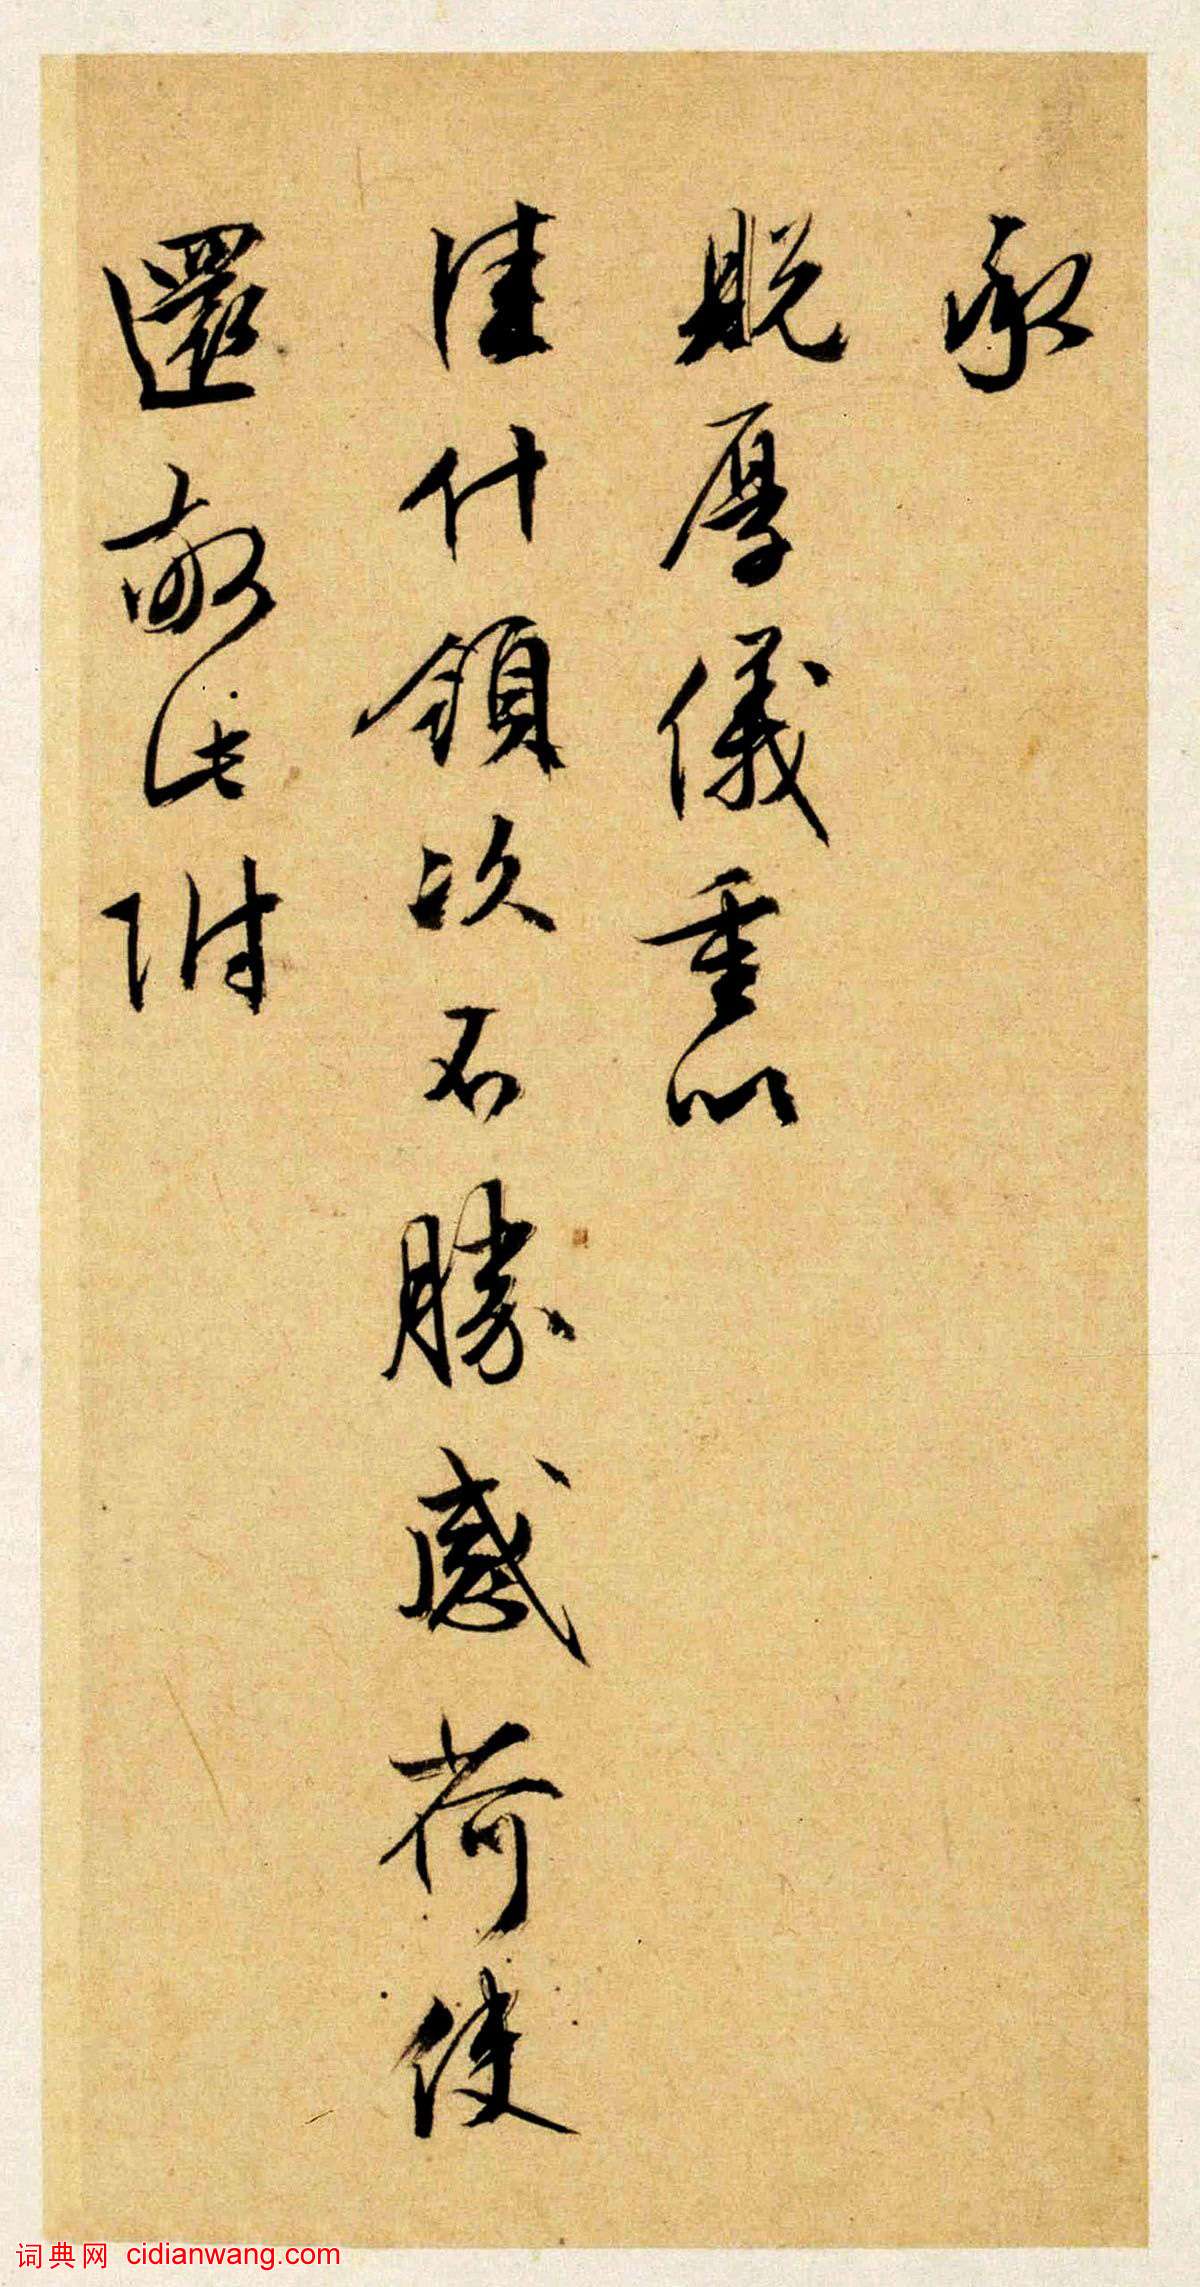 承
貺厚儀重以
佳什領次不勝感荷使
還敬此附
词典网 cidianwang.com